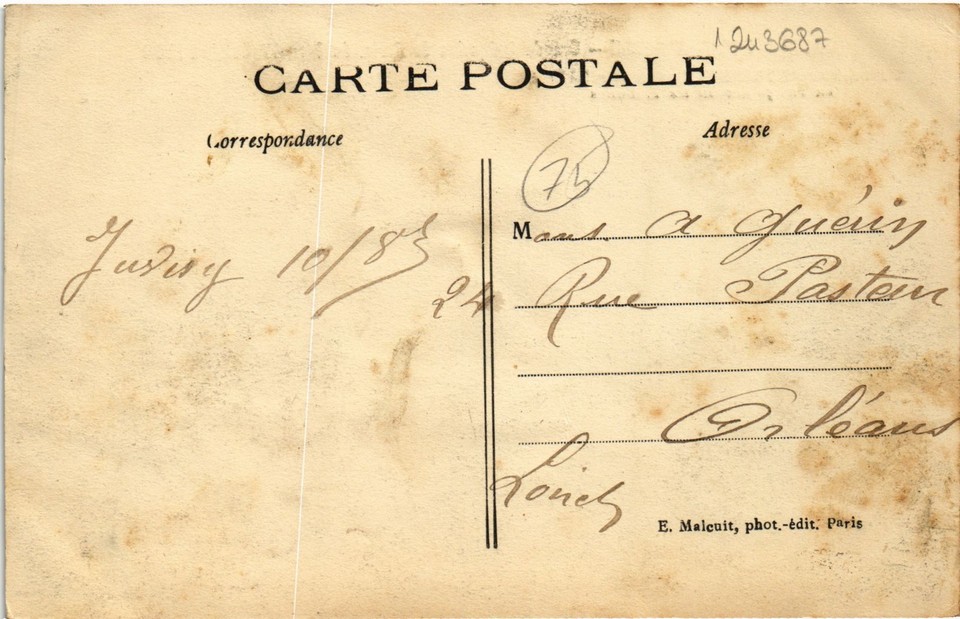 1243687
CARTE POSTALE
Correspondance
Adresse
75
Mons. A Guérin
Juvisy 10/8
24 Rue Pasteur
Orléans
Loiret
E. Malcuit, phot.-édit. Paris